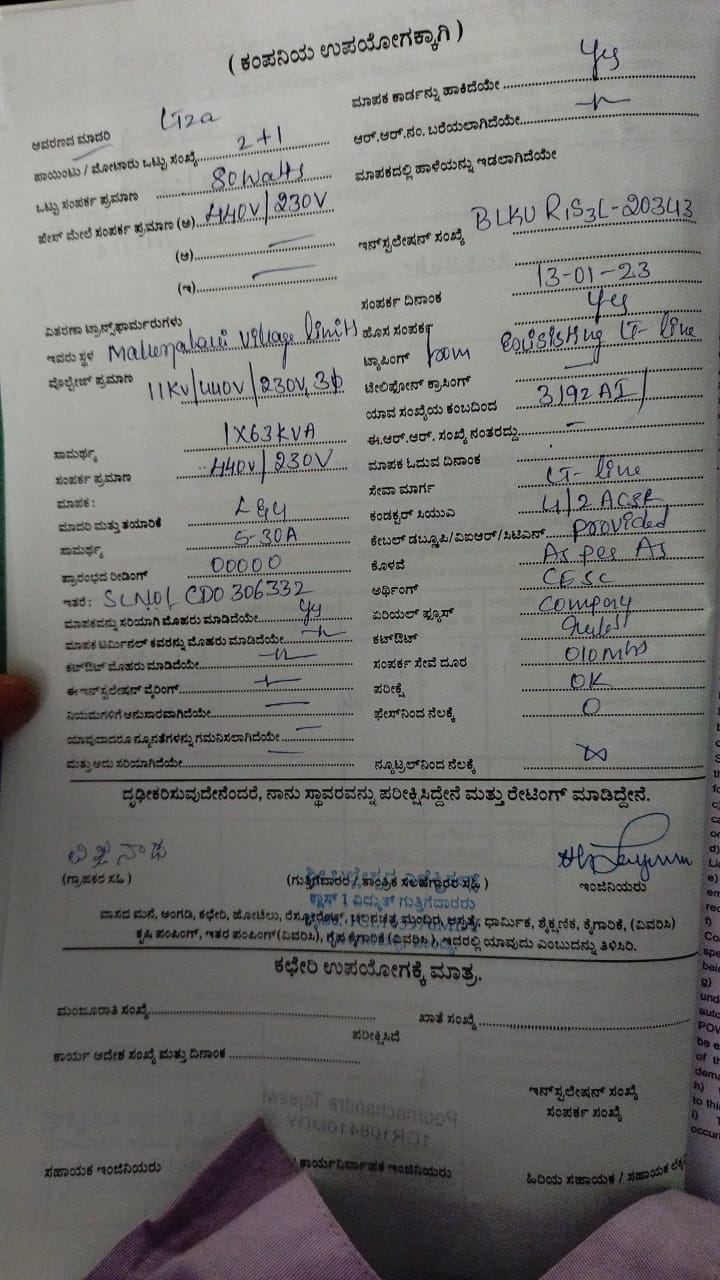 ( ಕಂಪನಿಯ ಉಪಯೋಗಕ್ಕಾಗಿ )
ಆವರಣದ ಮಾದರಿ LT2a
ಪಾಯಿಂಟು / ಮೋಟಾರು ಒಟ್ಟು ಸಂಖ್ಯೆ 2+1
ಒಟ್ಟು ಸಂಪರ್ಕ ಪ್ರಮಾಣ 80 Watts
ಫೇಸ್ ಮೇಲೆ ಸಂಪರ್ಕ ಪ್ರಮಾಣ (ಅ) 440V/230V
(ಆ) —
(ಇ) —
ವಿತರಣಾ ಟ್ರಾನ್ಸ್‌ಫಾರ್ಮರುಗಳು
ಇವರು ಸ್ಥಳ village limits
ವೋಲ್ಟೇಜ್ ಪ್ರಮಾಣ 11KV/440V/230V, 3ϕ
ಸಾಮರ್ಥ್ಯ 1X63KVA
ಸಂಪರ್ಕ ಪ್ರಮಾಣ 440V/230V
ಮಾಪಕ:
ಮಾದರಿ ಮತ್ತು ತಯಾರಿಕೆ L&G
ಸಾಮರ್ಥ್ಯ 5-30A
ಪ್ರಾರಂಭದ ರೀಡಿಂಗ್ 00000
ಇತರೆ : SLNO/ CDO 306332
ಮಾಪಕವನ್ನು ಸರಿಯಾಗಿ ಮೊಹರು ಮಾಡಿದೆಯೇ Yes
ಮಾಪಕ ಟರ್ಮಿನಲ್ ಕವರನ್ನು ಮೊಹರು ಮಾಡಿದೆಯೇ —"—
ಕಟ್‌ಔಟ್ ಮೊಹರು ಮಾಡಿದೆಯೇ —"—
ಈ ಇನ್‌ಸ್ಟಲೇಷನ್ ವೈರಿಂಗ್ —"—
ನಿಯಮಗಳಿಗೆ ಅನುಸಾರವಾಗಿದೆಯೇ —
ಯಾವುದಾದರೂ ನ್ಯೂನತೆಗಳನ್ನು ಗಮನಿಸಲಾಗಿದೆಯೇ —
ಮತ್ತು ಅದು ಸರಿಯಾಗಿದೆಯೇ —
ಮಾಪಕ ಕಾರ್ಡನ್ನು ಹಾಕಿದೆಯೇ Yes
ಆರ್.ಆರ್.ನಂ. ಬರೆಯಲಾಗಿದೆಯೇ —"—
ಮಾಪಕದಲ್ಲಿ ಹಾಳೆಯನ್ನು ಇಡಲಾಗಿದೆಯೇ
ಇನ್‌ಸ್ಟಲೇಷನ್ ಸಂಖ್ಯೆ BLKURIS3L-20343
ಸಂಪರ್ಕ ದಿನಾಂಕ 13-01-23
ಹೊಸ ಸಂಪರ್ಕ Yes
ಟ್ಯಾಪಿಂಗ್ from Exisisting LT-line
ಟೆಲಿಫೋನ್ ಕ್ರಾಸಿಂಗ್ —
ಯಾವ ಸಂಖ್ಯೆಯ ಕಂಬದಿಂದ 3192AI/
ಈ.ಆರ್.ಆರ್. ಸಂಖ್ಯೆ ನಂತರದ್ದು —
ಮಾಪಕ ಓದುವ ದಿನಾಂಕ
ಸೇವಾ ಮಾರ್ಗ LT-line
ಕಂಡಕ್ಟರ್ ಸಿಯುಎ 4/2 ACSR
ಕೇಬಲ್ ಡಬ್ಲ್ಯೂಪಿ/ವಿಐಆರ್/ಸಿಟಿಎನ್ provided
ಕೊಳವೆ As per AS
ಅರ್ಥಿಂಗ್ CESC
ಏರಿಯಲ್ ಫ್ಯೂಸ್ Company
ಕಟ್‌ಔಟ್
ಸಂಪರ್ಕ ಸೇವೆ ದೂರ 010 mtrs
ಪರೀಕ್ಷೆ OK
ಫೇಸ್‌ನಿಂದ ನೆಲಕ್ಕೆ 0
ನ್ಯೂಟ್ರಲ್‌ನಿಂದ ನೆಲಕ್ಕೆ ∞
ದೃಢೀಕರಿಸುವುದೇನೆಂದರೆ, ನಾನು ಸ್ಥಾವರವನ್ನು ಪರೀಕ್ಷಿಸಿದ್ದೇನೆ ಮತ್ತು ರೇಟಿಂಗ್ ಮಾಡಿದ್ದೇನೆ.
(ಗ್ರಾಹಕರ ಸಹಿ) (ಗುತ್ತಿಗೆದಾರರ / ತಾಂತ್ರಿಕ ಸಲಹೆಗಾರರ ಸಹಿ) ಇಂಜಿನಿಯರು
ಕ್ಲಾಸ್ 1 ವಿದ್ಯುತ್ ಗುತ್ತಿಗೆದಾರರು
ವಾಸದ ಮನೆ, ಅಂಗಡಿ, ಕಛೇರಿ, ಹೋಟೆಲು, ರೆಸ್ಟೋರೆಂಟ್, ಚಲನಚಿತ್ರ ಮಂದಿರ, ಆಸ್ಪತ್ರೆ, ಧಾರ್ಮಿಕ, ಶೈಕ್ಷಣಿಕ, ಕೈಗಾರಿಕೆ, (ವಿವರಿಸಿ)
ಕೃಷಿ ಪಂಪಿಂಗ್, ಇತರ ಪಂಪಿಂಗ್ (ವಿವರಿಸಿ), ಗೃಹ ಕೈಗಾರಿಕೆ (ವಿವರಿಸಿ), ಇದರಲ್ಲಿ ಯಾವುದು ಎಂಬುದನ್ನು ತಿಳಿಸಿರಿ.
ಕಛೇರಿ ಉಪಯೋಗಕ್ಕೆ ಮಾತ್ರ.
ಮಂಜೂರಾತಿ ಸಂಖ್ಯೆ ಖಾತೆ ಸಂಖ್ಯೆ
ಪರೀಕ್ಷಿಸಿದೆ
ಕಾರ್ಯ ಆದೇಶ ಸಂಖ್ಯೆ ಮತ್ತು ದಿನಾಂಕ
ಇನ್‌ಸ್ಟಲೇಷನ್ ಸಂಖ್ಯೆ
ಸಂಪರ್ಕ ಸಂಖ್ಯೆ
ಸಹಾಯಕ ಇಂಜಿನಿಯರು / ಕಾರ್ಯನಿರ್ವಾಹಕ ಇಂಜಿನಿಯರು ಹಿರಿಯ ಸಹಾಯಕ / ಸಹಾಯಕ